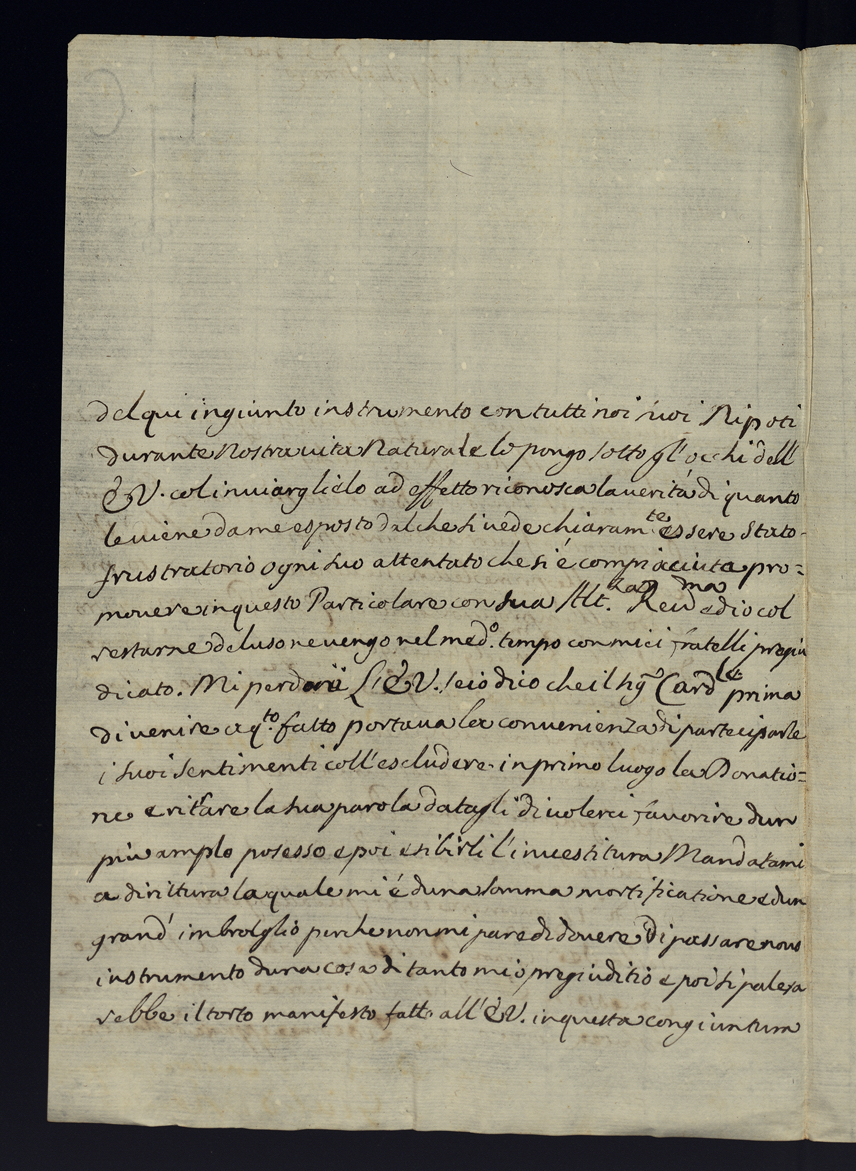 del qui ingiunto instrumento con tutti noi suoi Nipoti
durante Nostra vita Naturale lo pongo sotto gl'occhi dell'
E V. col inviarglielo ad effetto riconosca la verità di quanto
le viene da me esposto dal che si vede chiaram.te essere stato
frustratorio ogni suo attentato che si é compiaciuta pro=
movere in questo Particolare con sua Alt.zza Rev.ma ed io col
restarne deluso ne vengo nel med.o tempo con miei fratelli pregiu
dicato. Mi perdonï L'E V. se io dico che il Sig.r Card.le prima
di venire a q.to fatto portava la convenienza di parteciparle
i suoi sentimenti coll'escludere in primo luogo la Donatio=
ne e ritrare la sua parola datagli di volerci favorire d'un
piu amplo posesso e poi esibirli l'investitura Mandatami
a dirittura la quale mi é d'una somma mortificatione e d'un
grand' imbroglio perche non mi pare di dovere Di passare novo
instrumento d'una cosa di tanto mio pregiuditio e poi si palesa
rebbe il torto manifesto fatto all'E V. in questa congiuntura